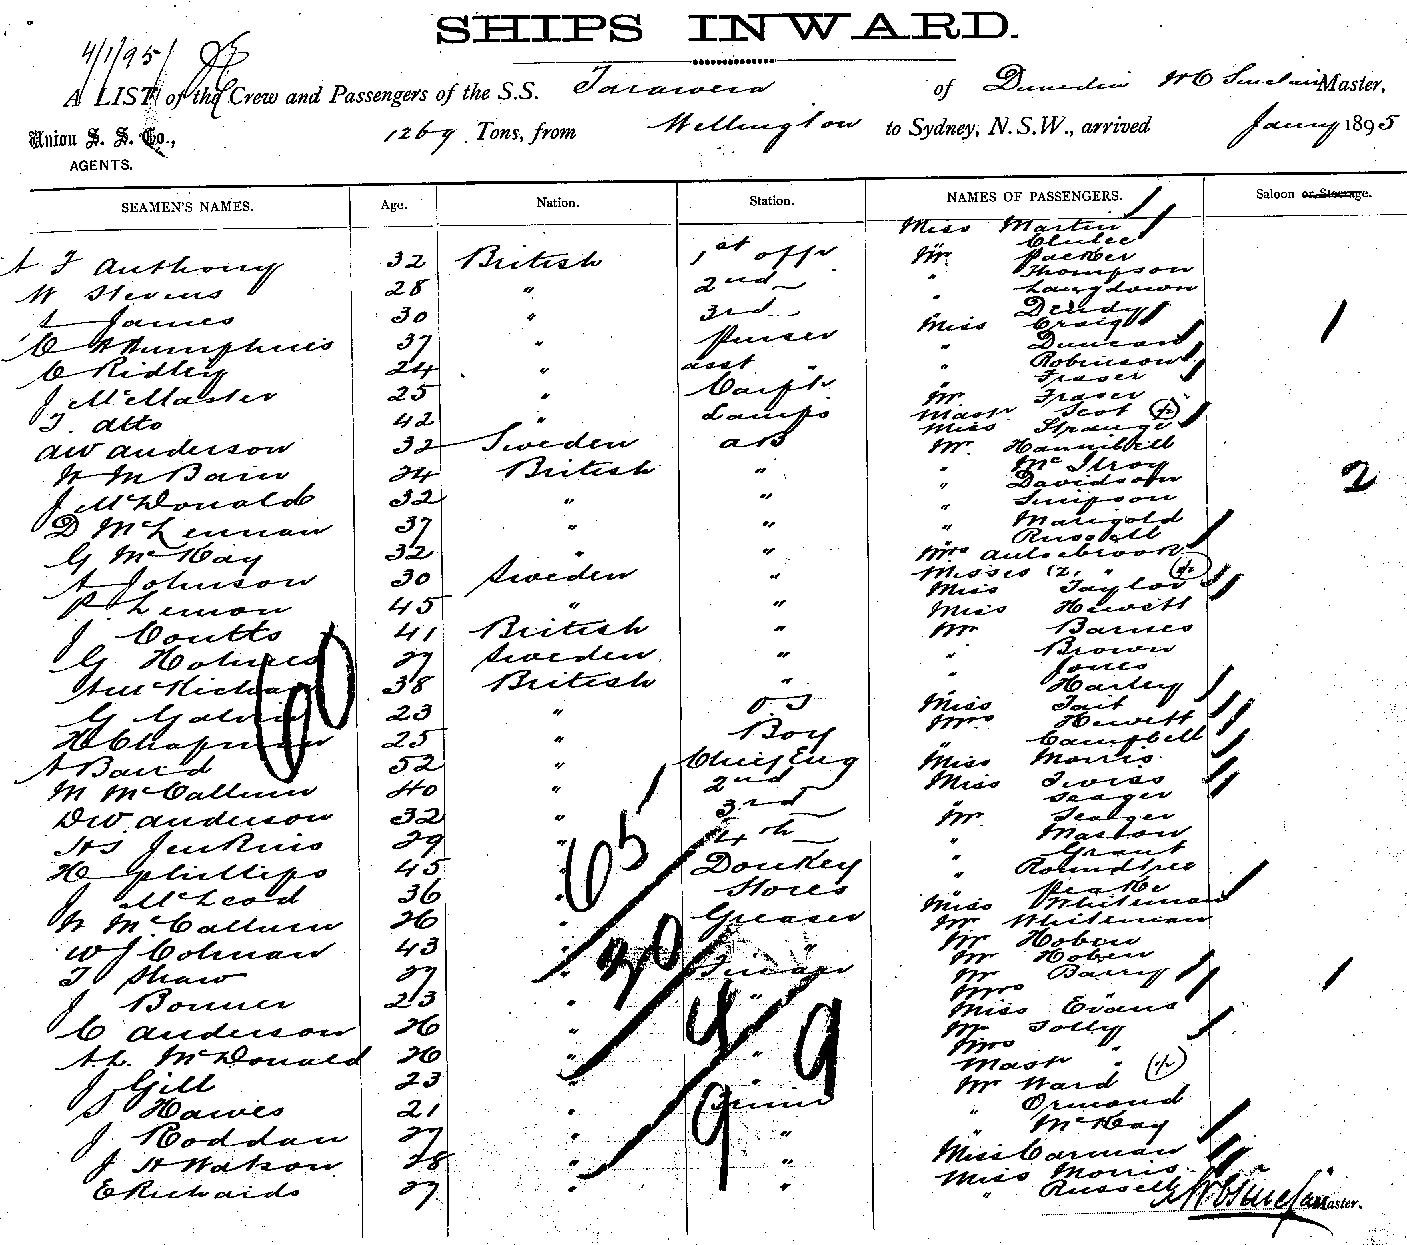 SHIPS INWARD.
4/1/95
A LIST of the Crew and Passengers of the S.S. Tarawera of Dunedin W C Sinclair Master,
Union S. S. Co., 1269 Tons, from Wellington to Sydney, N.S.W., arrived Jany 1895
AGENTS.
SEAMEN'S NAMES. Age. Nation. Station. NAMES OF PASSENGERS. Saloon or Steerage.
Miss Martin
Clulee
A F Anthony 32 British 1st offr Mr Packer
W Stevens 28 " 2nd " Thompson
" Langdown
L James 30 " 3rd Dendy
C H Humphries 37 " Purser Miss Craig 1
" Duncan
C Ridley 24 " asst " " Robinson
J McMaster 25 " Carptr " Fraser
Mr Fraser
T atto 42 " Lamps Mastr Scot
Miss Strange
AW Anderson 32 Sweden AB Mr Hannibell
W McBain 24 British " " McIlroy
" Davidson 2
J McDonald 32 " " " Simpson
D McLennan 37 " " " Marigold
" Russell
G McKay 32 " " Mrs Aulsebrook
A Johnson 30 Sweden " Misses (2) "
Miss Taylor
P Lemon 45 " " Miss Hewett
J Coutts 41 British " Mr Barnes
G Holmes 27 Sweden " " Brown
" Jones
38 British " " Harley
G Galvin 23 " OS Miss Tait
Mrs Hewett
H Chapman 25 " Boy " Campbell
A Baird 52 " Chief Eng Miss Morris
M McCallum 40 " 2nd Miss Twiss
" Seager
DW Anderson 32 " 3rd Mr Seager
HS Jenkins 29 " 4th " Marson
" Grant
H Phillips 45 " Donkey " Roundtree
J McLeod 36 " Stores " Peake
Miss Whiteman
N McCallum 26 " Greaser Mr Whiteman
Mr Hoben
W J Colman 43 " " Mr Hoben
T Shaw 27 " Fireman Mr Barry 1
Mrs "
J Bonner 23 " " Miss Evans
C Anderson 26 " Mr Jolly
Mrs "
A L McDonald 26 " " Mastr "
J Gill 23 " " Mr Ward
S Hawes 21 " Trimr " Ormond
J Roddan 27 " " " McKay
J H Watson 28 " " Miss Carman
Miss Morris
E Richards 27 " " " Russell
W C Sinclair Master.
60
65
30
4
9
9